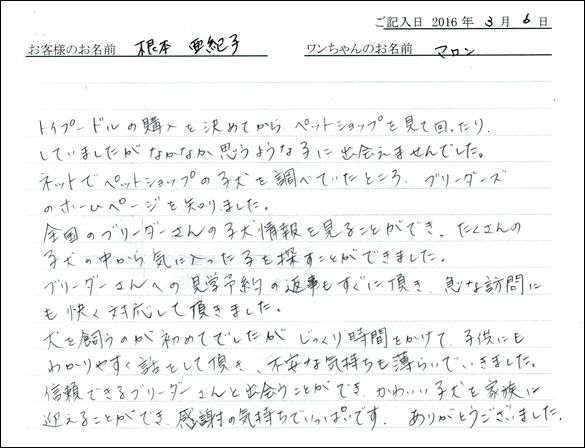 ご記入日 2016年 3月 6日
お客様のお名前 根本 亜紀子 ワンちゃんのお名前 マロン
トイプードルの購入を決めてから ペットショップを見て回ったり、
していましたが なかなか思うような子に出会えませんでした。
ネットでペットショップの子犬を調べていたところ、ブリーダーズ
のホームページを知りました。
全国のブリーダーさんの子犬情報を見ることができ、たくさんの
子犬の中から気に入った子を探すことができました。
ブリーダーさんへの見学予約の返事もすぐに頂き、急な訪問に
も快く対応して頂きました。
犬を飼うのが初めてでしたが じっくり時間をかけて、子供にも
わかりやすく話をして頂き、不安な気持ちも薄らいでいきました。
信頼できるブリーダーさんと出会うことができ、かわいい子犬を家族に
迎えることができ、感謝の気持ちでいっぱいです。 ありがとうございました。